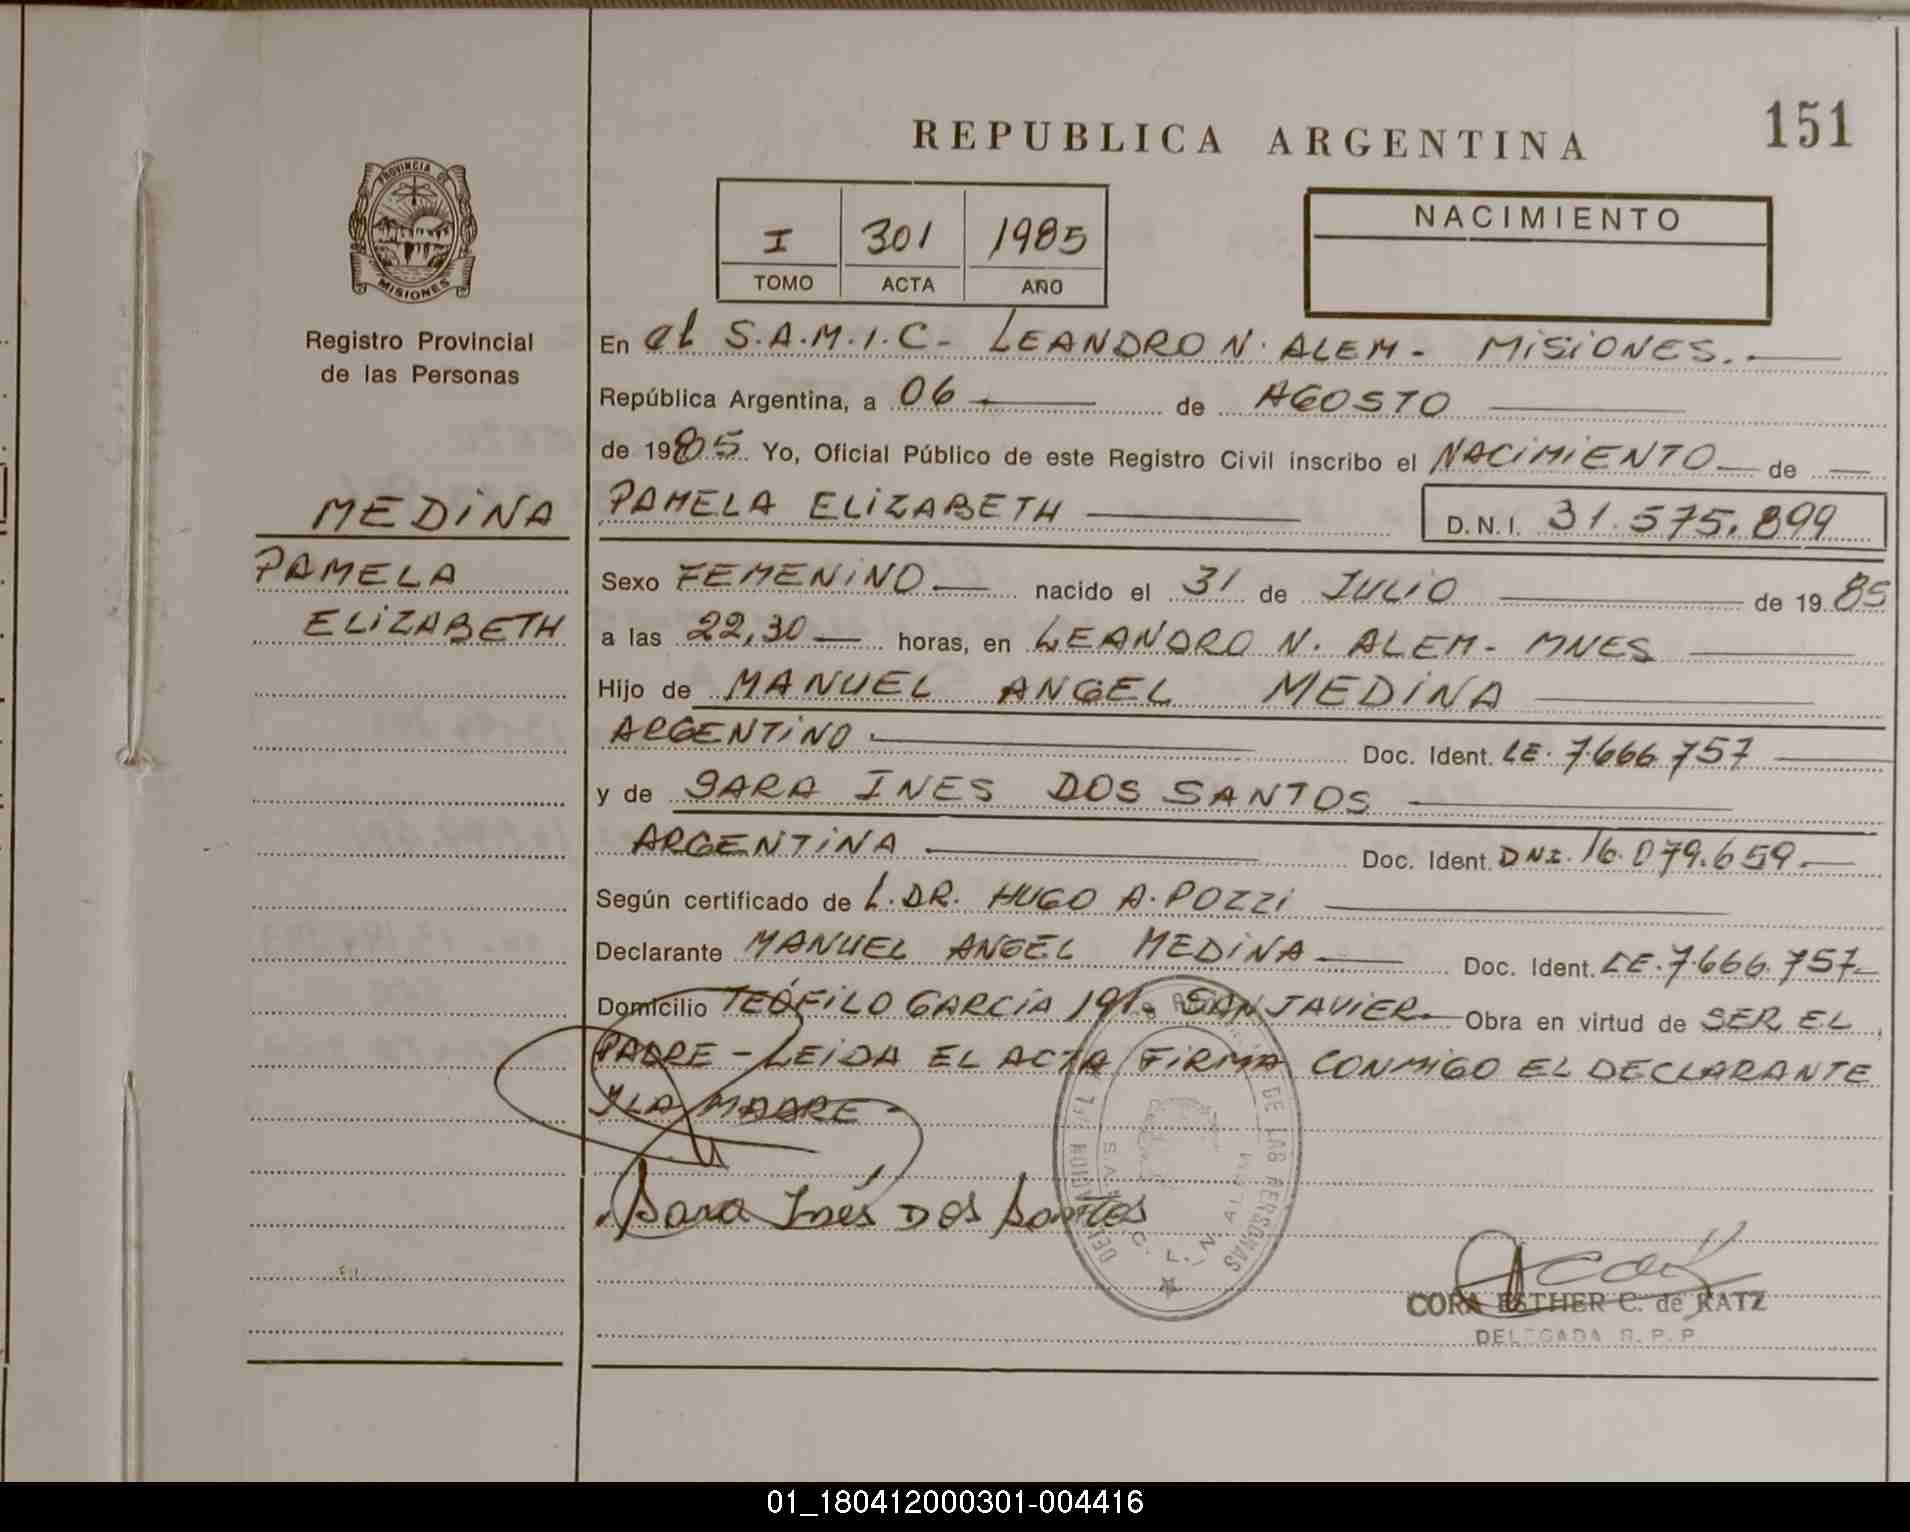 REPUBLICA ARGENTINA
151
PROVINCIA DE
MISIONES
Registro Provincial
de las Personas
I 301 1985
TOMO ACTA AÑO
NACIMIENTO
En el S.A.M.I.C- LEANDRO N. ALEM- MISIONES.
República Argentina, a 06 de AGOSTO
de 1985 Yo, Oficial Público de este Registro Civil inscribo el NACIMIENTO de
MEDINA
PAMELA
ELIZABETH
PAMELA ELIZABETH D.N.I. 31.575.899
Sexo FEMENINO nacido el 31 de JULIO de 1985
a las 22,30 horas, en LEANDRO N. ALEM- MNES
Hijo de MANUEL ANGEL MEDINA
ARGENTINO Doc. Ident. LE. 7.666.757
y de SARA INES DOS SANTOS
ARGENTINA Doc. Ident. DNI. 16.079.659
Según certificado de L. DR. HUGO A. POZZI
Declarante MANUEL ANGEL MEDINA Doc. Ident. LE. 7.666.757
Domicilio TEÓFILO GARCÍA 191. SAN JAVIER Obra en virtud de SER EL
PADRE - LEIDA EL ACTA FIRMA CONMIGO EL DECLARANTE
Y LA MADRE
Sara Inés Dos Santos
DE LAS PERSONAS
L. N. ALEM
CORA ESTHER C. de KATZ
DELEGADA R. P. P.
01_180412000301-004416